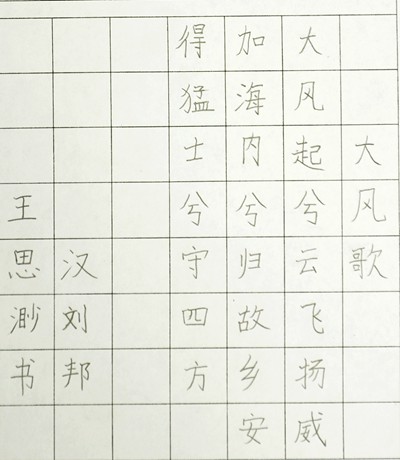 大风歌
大风起兮云飞扬威
加海内兮归故乡安
得猛士兮守四方
汉刘邦
王思渺书